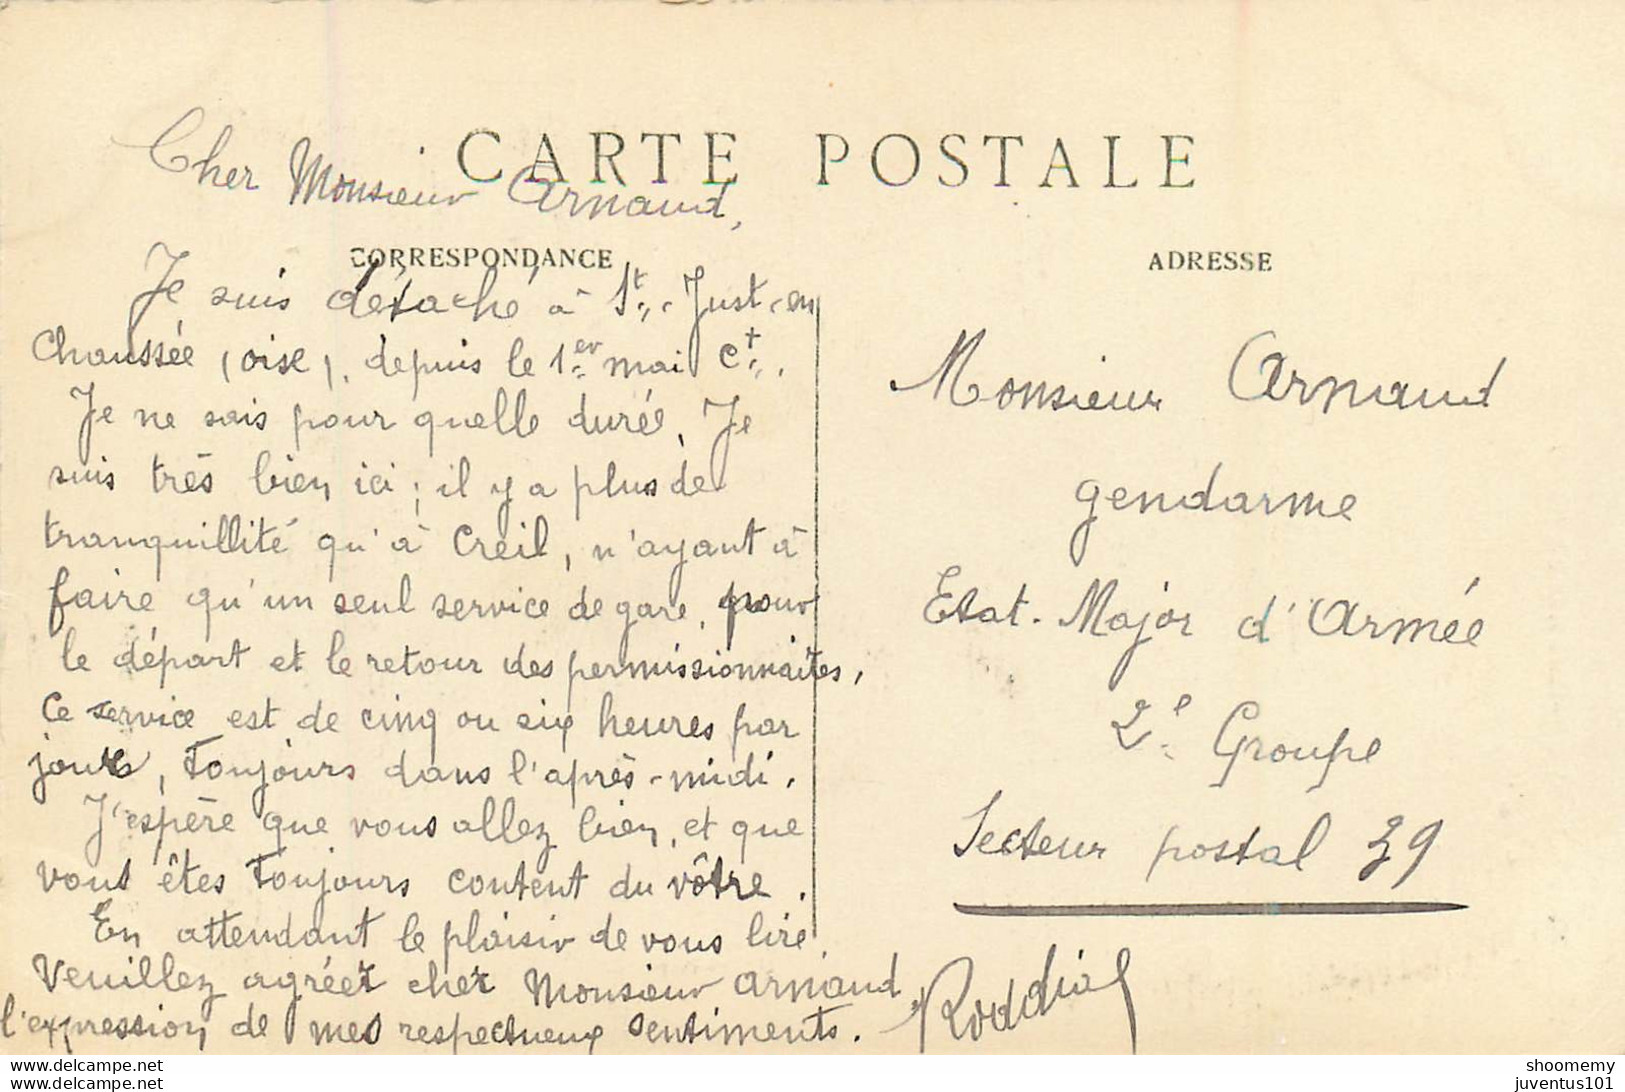 CARTE POSTALE
Cher Monsieur Arnaud,
CORRESPONDANCE
Je suis détaché à St.-Just-en
Chaussée (oise), depuis le 1er mai ct.
Je ne sais pour quelle durée. Je
suis très bien ici; il y a plus de
tranquillité qu'à Creil, n'ayant à
faire qu'un seul service de gare, pour
le départ et le retour des permissionnaires,
Ce service est de cinq ou six heures par
jour, Toujours dans l'après-midi.
J'espère que vous allez bien, et que
vous êtes Toujours content du vôtre.
En attendant le plaisir de vous lire
Veuillez agréer cher Monsieur Arnaud
l'expression de mes respectueux sentiments.
Roddial
ADRESSE
Monsieur Arnaud
gendarme
Etat-Major d'Armée
2e Groupe
Secteur postal 39
https://www.delcampe.net
https://www.delcampe.net
shoomemy
juventus101